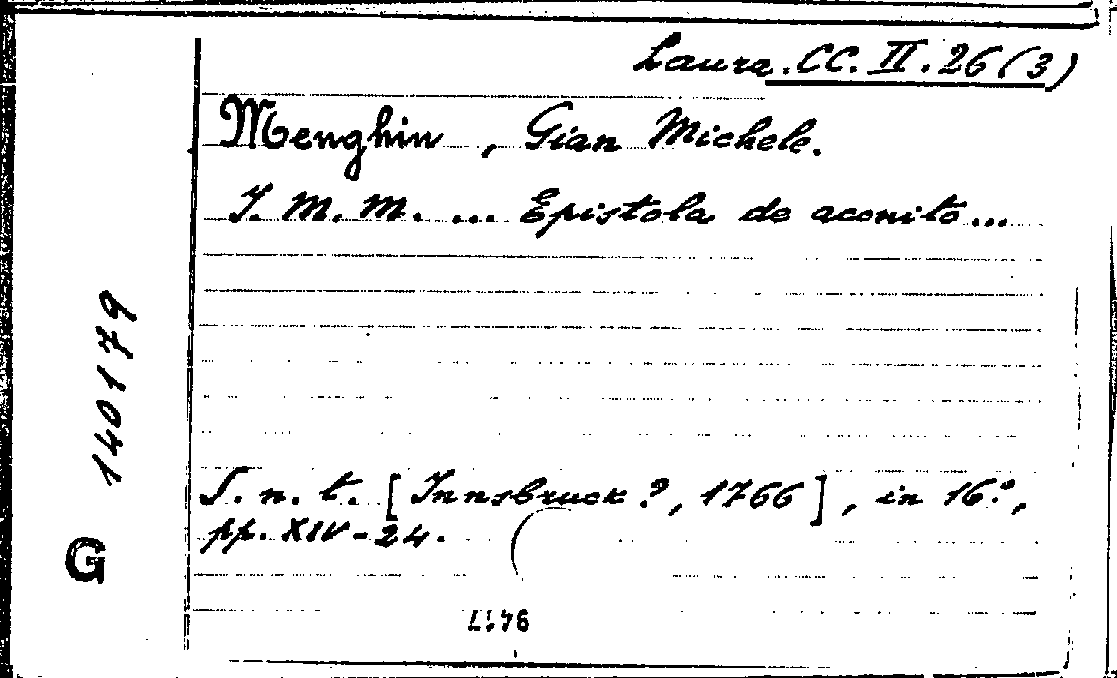 Laura. CC. II. 26 (3)
Menghin, Gian Michele.
I. M. M. ... Epistola de aconito...
S. n. t. [Innsbruck ?, 1766], in 16º,
pp. XIV-24.
140179
G